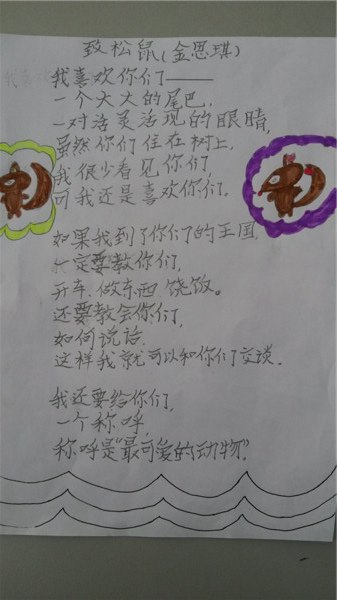 致松鼠(金思琪)
我喜欢你们——
一个大大的尾巴,
一对活灵活现的眼睛,
虽然你们住在树上,
我很少看见你们,
可我还是喜欢你们。
如果我到了你们的王国,
一定要教你们,
开车、做东西、饶饭。
还要教会你们,
如何说话,
这样我就可以和你们交谈。
我还要给你们,
一个称呼,
称呼是“最可爱的动物”。